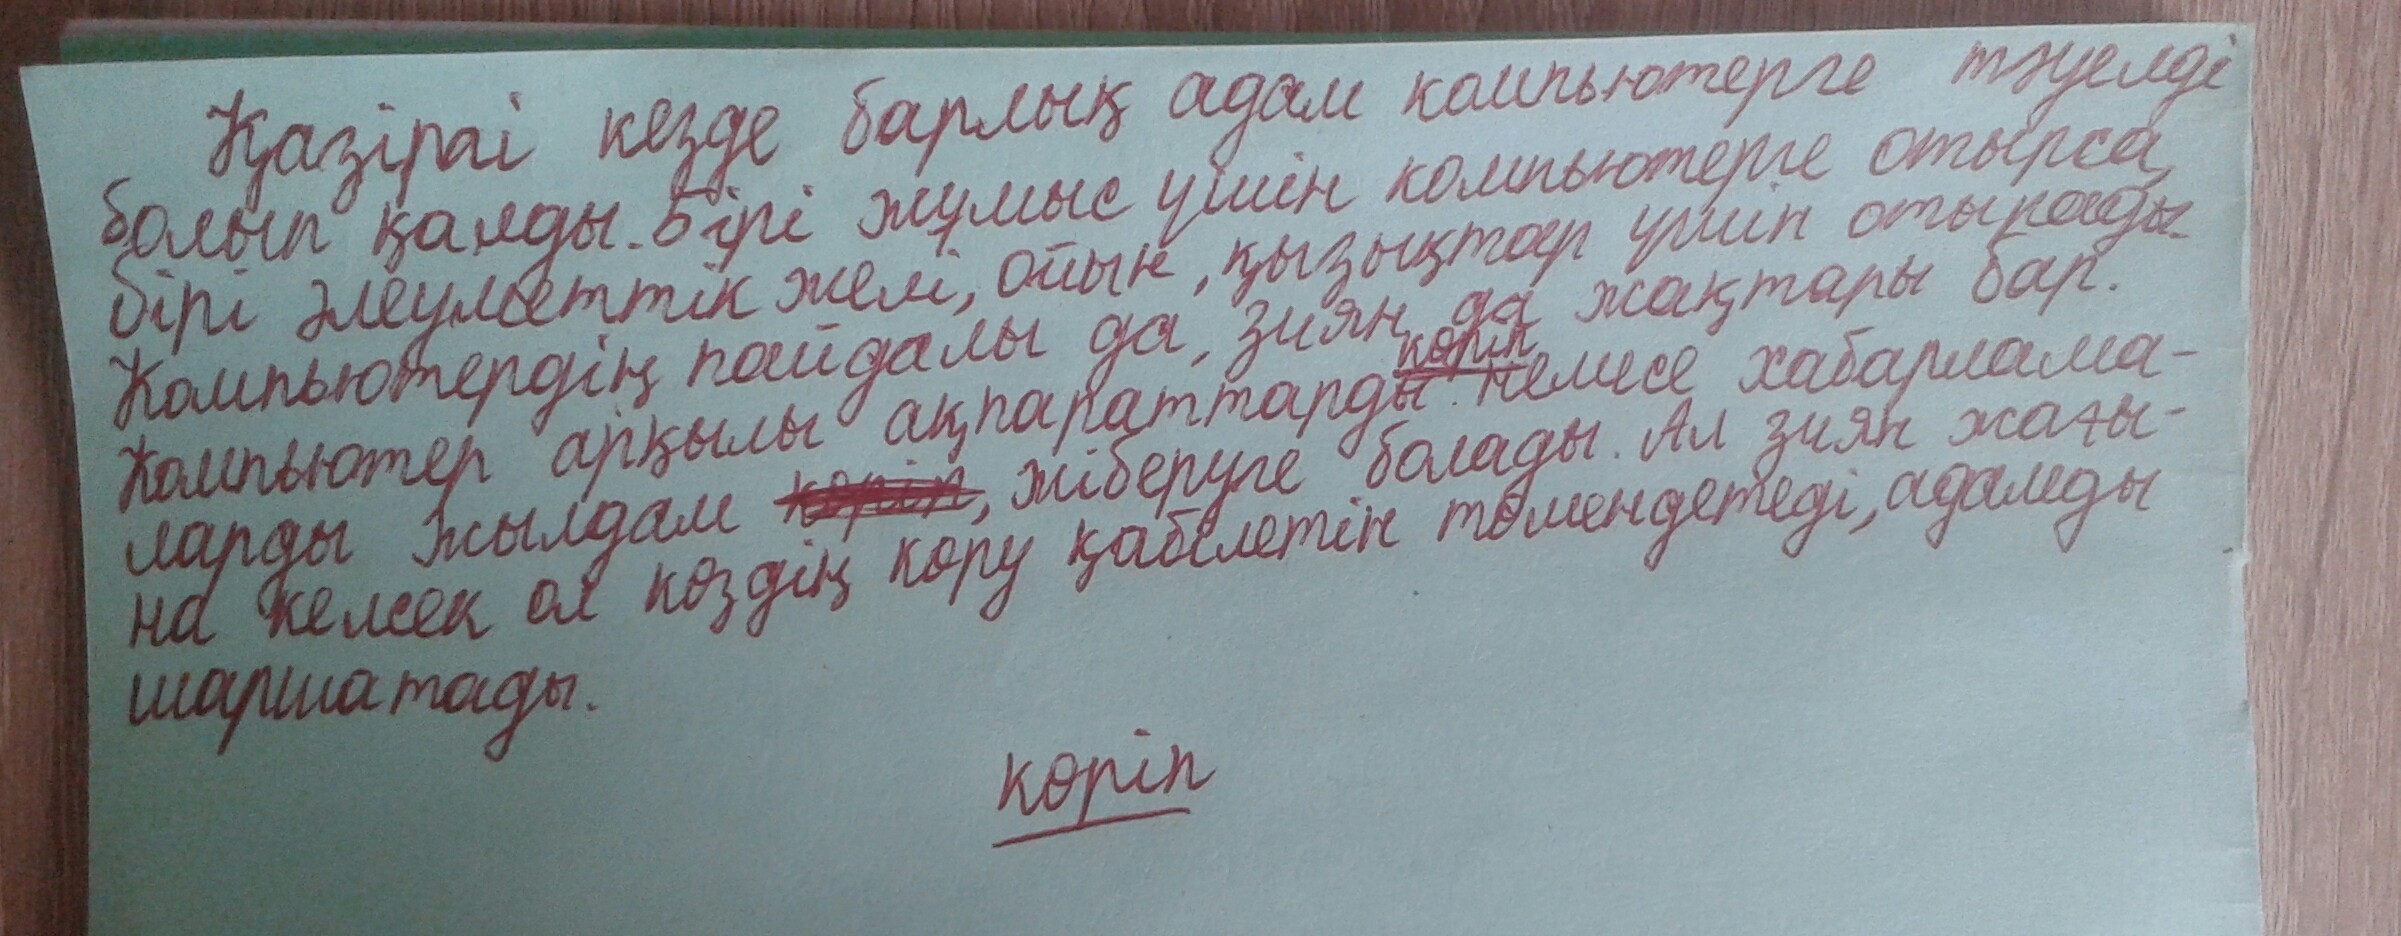 Қазіргі кезде барлық адам компьютерге тәуелді
болып қалды. Бірі жұмыс үшін компьютерге отырса,
бірі әлеуметтік желі, ойын, қызықтар үшін отырады.
Компьютердің пайдалы да, зиян да жақтары бар.
Компьютер арқылы ақпараттарды көріп немесе хабарлама-
ларды жылдам көріп, жіберуге болады. Ал зиян жағы-
на келсек ол көздің көру қабілетін төмендетеді, адамды
шаршатады.
көріп